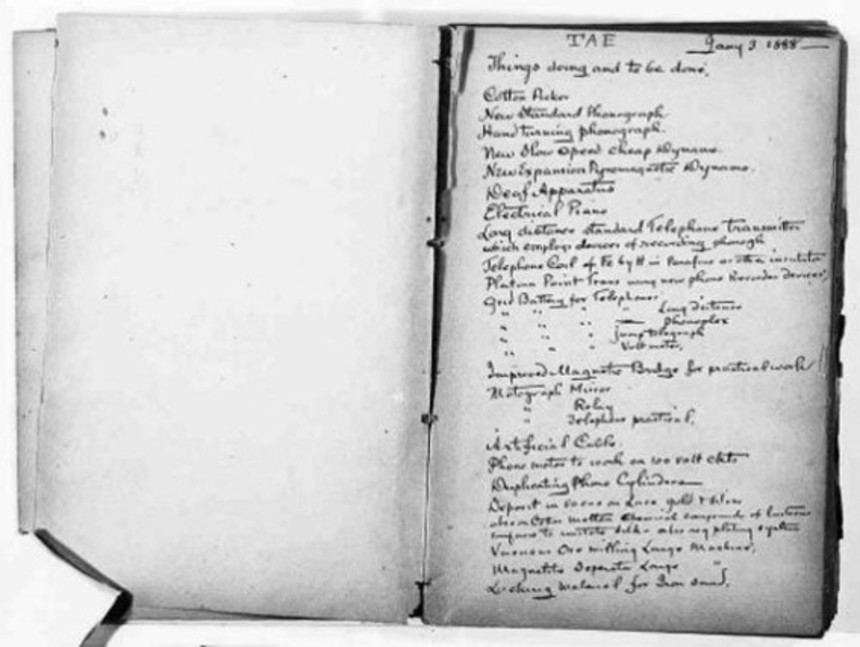 TAE Jany 3 1888
Things doing and to be done.
Cotton Picker
New Standard Phonograph
Hand turning phonograph.
New Slow speed cheap Dynamo.
New Expansion Pyromagnetic Dynamo.
Deaf Apparatus
Electrical Piano
Long distance standard Telephone Transmitter
which employs devices of recording phonogh
Telephone Coil of Fe by H in Parafine or other insulator
Platina Point Trans using new phono Recorder devices,
Grid Battery for Telephones.
" " " " Long distance
" " " Phonoplex
" " " Jump telegraph
" " " Voltmeter,
Improved Magnetic Bridge for practical work
Motograph Mirror
" Relay
" Telephone practical,
Artificial Cable
Phono motor to work on 100 volt ckts
Duplicating Phono Cylinders
Deposit in vacuo on Lace gold & silver
also on Cotton molten chemical compounds of lustrous
surfaces to imitate silk also reg plating system
Vacuous Ore milling Large Machine,
Magnetic Separator Large
Locking material for Iron sand,